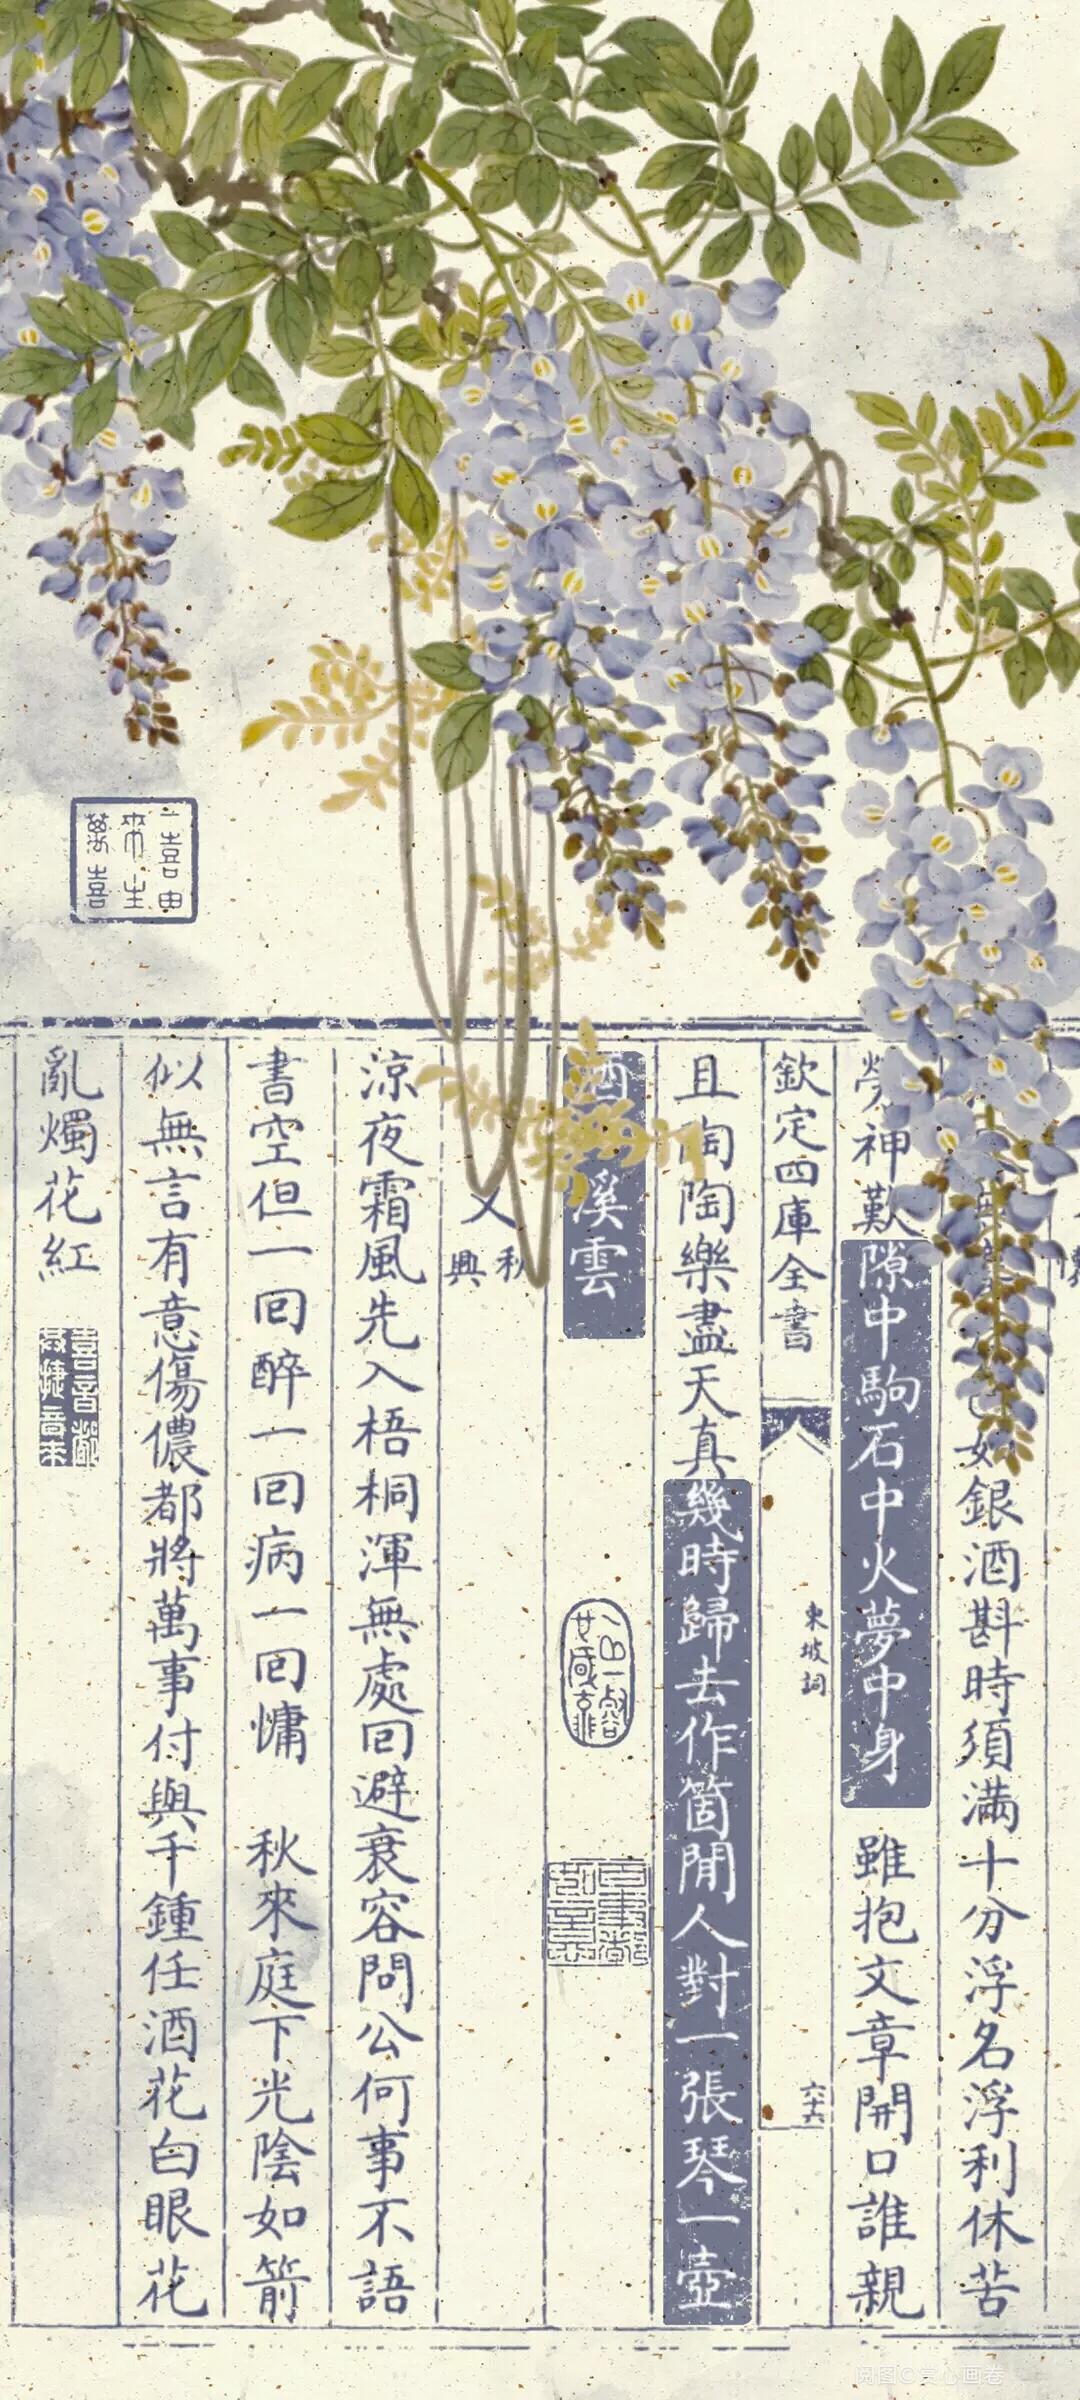 如銀酒斟時須滿十分浮名浮利休苦
勞神歎隙中駒石中火夢中身 雖抱文章開口誰親
欽定四庫全書
東坡詞
六十六
且陶陶樂盡天真幾時歸去作箇閒人對一張琴一壺
酒 溪雲
又
秋
興
涼夜霜風先入梧桐渾無處回避衰容問公何事不語
書空但一回醉一回病一回慵 秋來庭下光陰如箭
似無言有意傷儂都將萬事付與千鍾任酒花白眼花
亂燭花紅
一喜由
來生
萬喜
阅图©赏心画卷